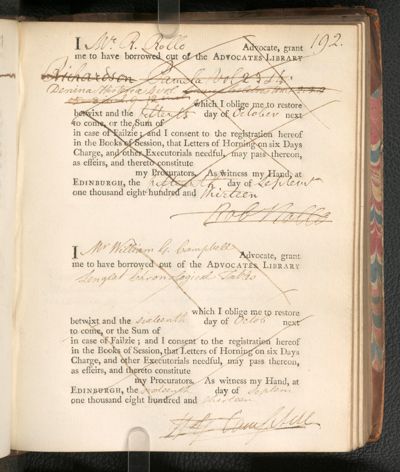 192.
I Mr R. Rollo Advocate, grant
me to have borrowed out of the ADVOCATES LIBRARY
Richardson Pamela Vol 2 3 & 4
Denina
which I oblige me to restore
betwixt and the fifteenth day of October next
to come, or the Sum of
in case of Failzie; and I consent to the registration hereof
in the Books of Session, that Letters of Horning on six Days
Charge, and other Executorials needful, may pass thereon,
as effeirs, and thereto constitute
my Procurators. As witness my Hand, at
EDINBURGH, the fifteenth day of Septemr
one thousand eight hundred and thirteen
Rob Rollo
I Mr William G. Campbell Advocate, grant
me to have borrowed out of the ADVOCATES LIBRARY
Lenglet Chronological Tables
which I oblige me to restore
betwixt and the sixteenth day of Octob next
to come, or the Sum of
in case of Failzie; and I consent to the registration hereof
in the Books of Session, that Letters of Horning on six Days
Charge, and other Executorials needful, may pass thereon,
as effeirs, and thereto constitute
my Procurators. As witness my Hand, at
EDINBURGH, the sixteenth day of Septem
one thousand eight hundred and thirteen
Campbell